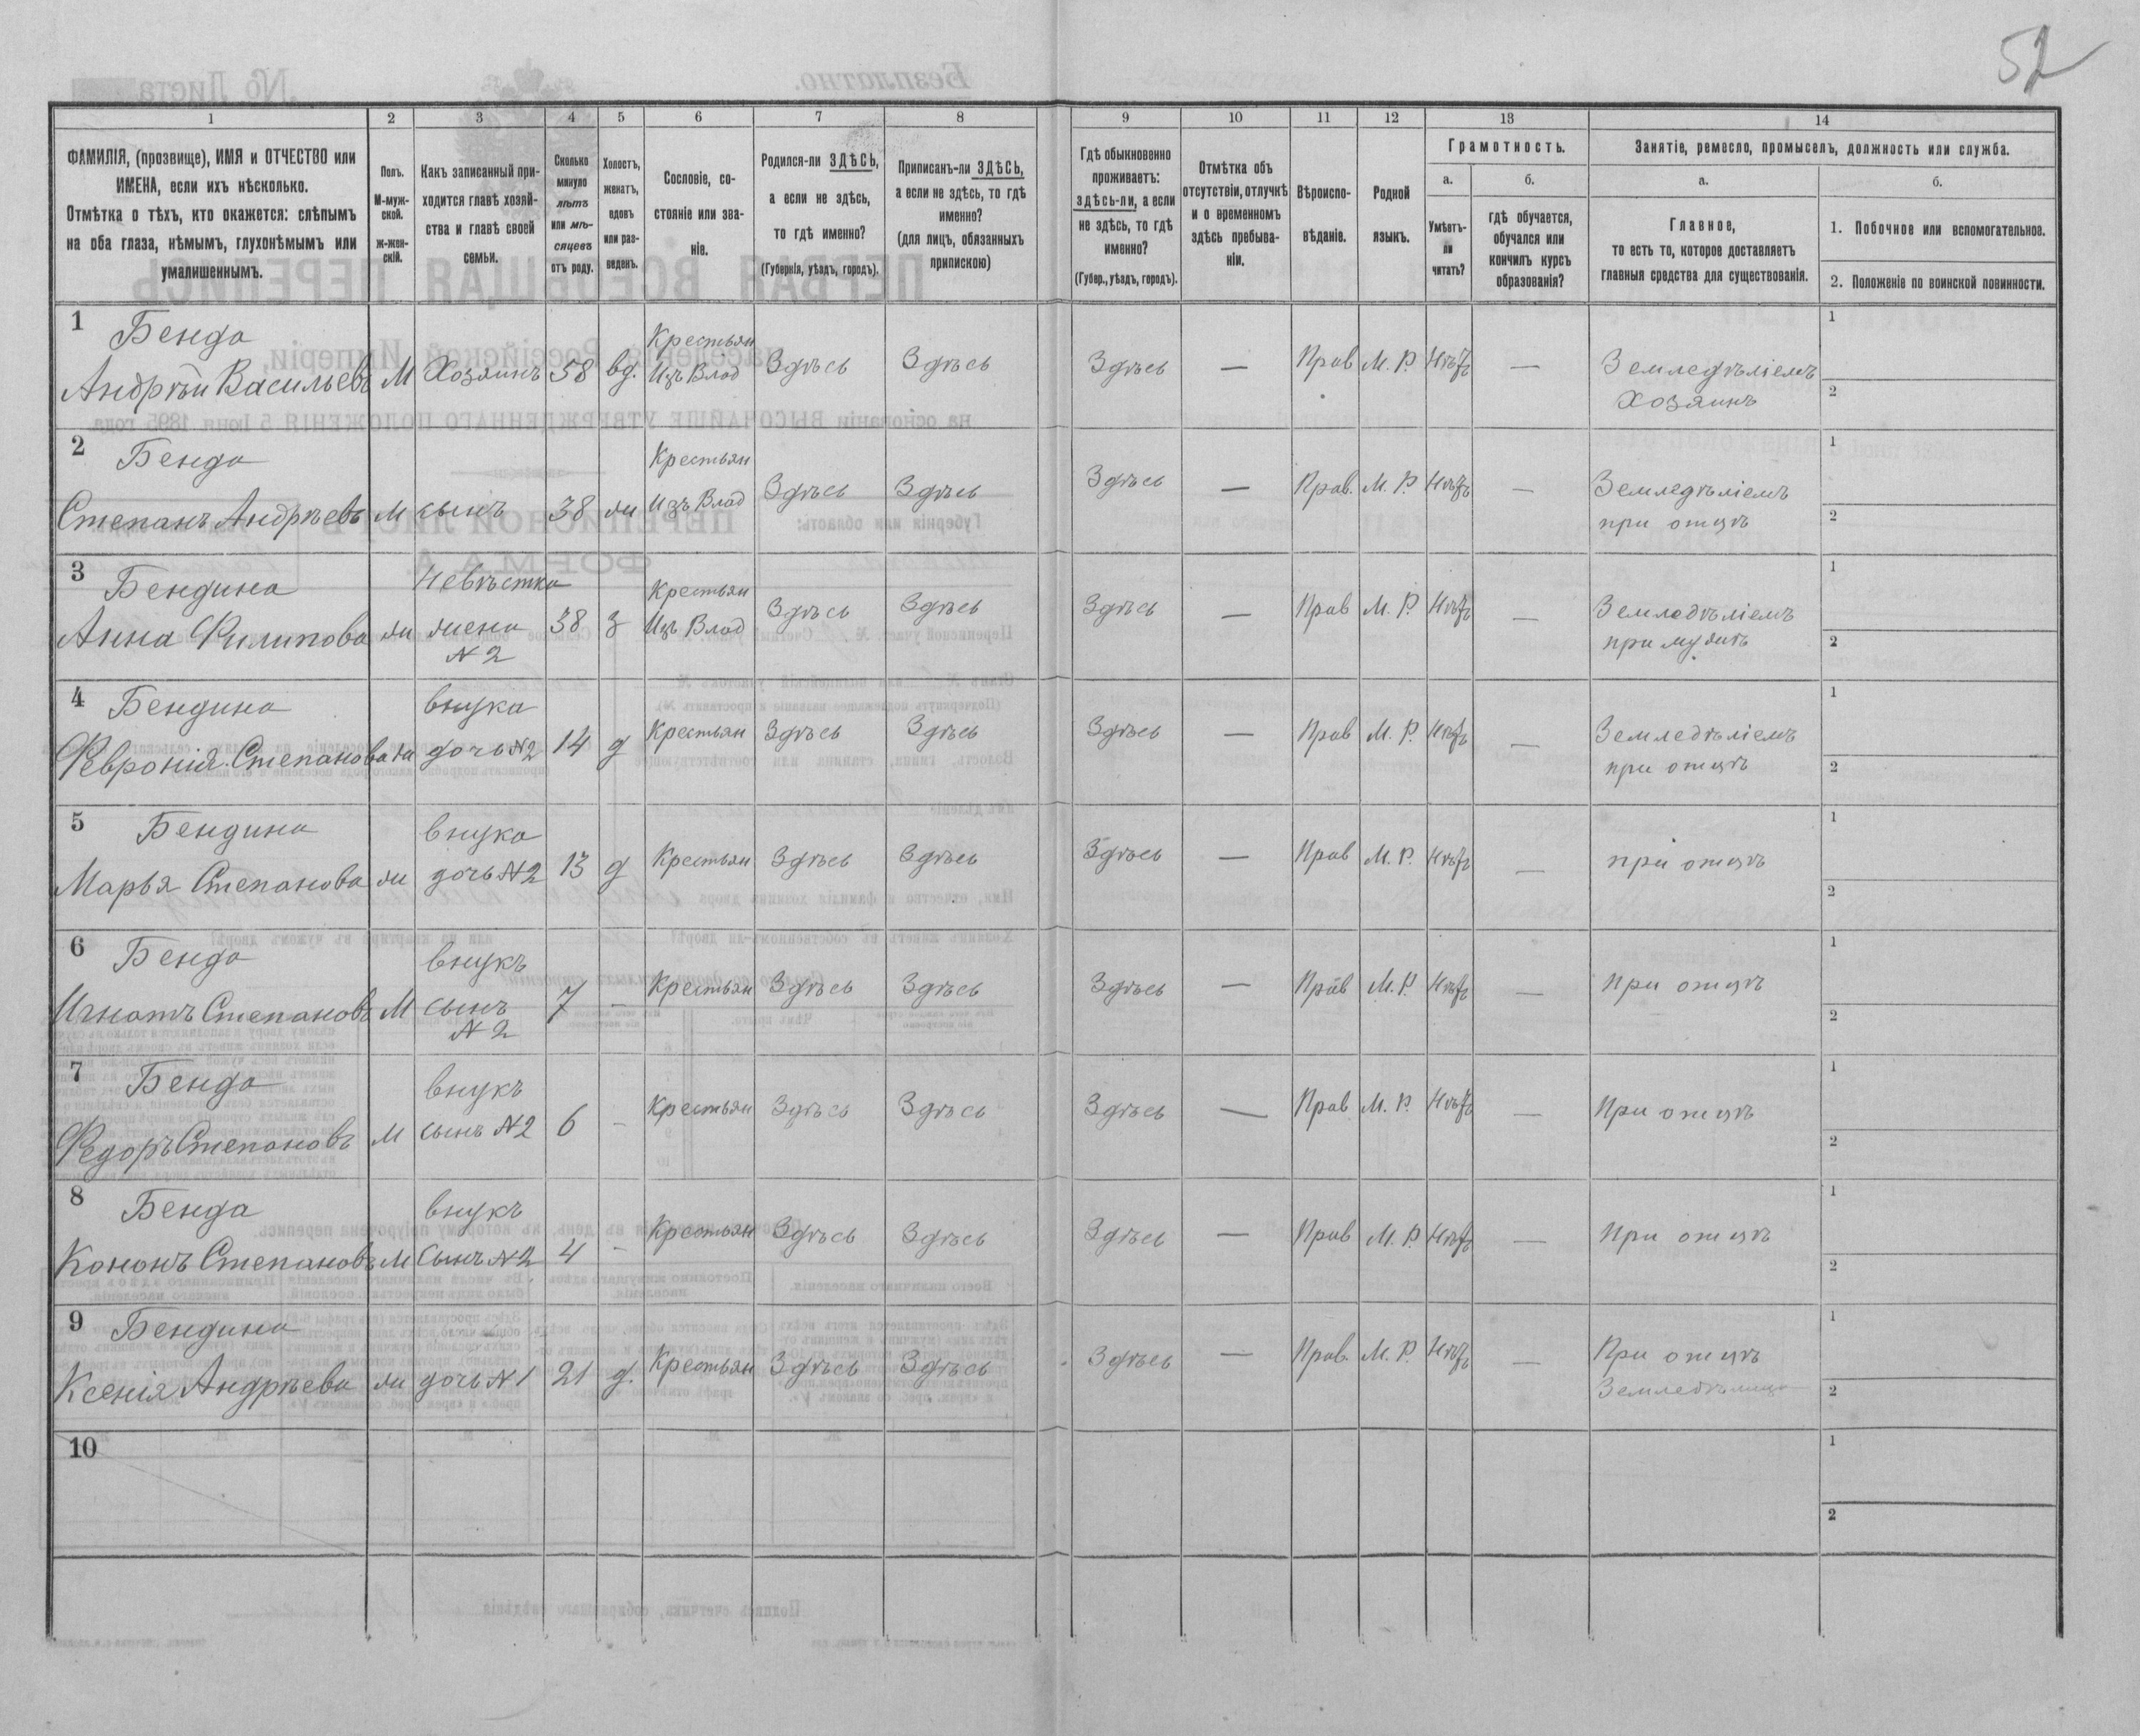 52
1 2 3 4 5 6 7 8 9 10 11 12 13 14
ФАМИЛІЯ, (прозвище), ИМЯ и ОТЧЕСТВО или
ИМЕНА, если ихъ нѣсколько.
Отмѣтка о тѣхъ, кто окажется: слѣпымъ
на оба глаза, нѣмымъ, глухонѣмымъ или
умалишеннымъ.
Полъ.
М-муж-
ской.
ж-жен-
скій.
Какъ записанный при-
ходится главѣ хозяй-
ства и главѣ своей
семьи.
Сколько
минуло
лѣтъ
или мѣ-
сяцевъ
отъ роду.
Холостъ,
женатъ,
вдовъ
или раз-
веденъ.
Сословіе, со-
стояніе или зва-
ніе.
Родился-ли ЗДѢСЬ,
а если не здѣсь,
то гдѣ именно?
(Губернія, уѣздъ, городъ).
Приписанъ-ли ЗДѢСЬ,
а если не здѣсь, то гдѣ
именно?
(для лицъ, обязанныхъ
припискою)
Гдѣ обыкновенно
проживаетъ:
здѣсь-ли, а если
не здѣсь, то гдѣ
именно?
(Губер., уѣздъ, городъ).
Отмѣтка объ
отсутствіи, отлучкѣ
и о временномъ
здѣсь пребыва-
ніи.
Вѣроиспо-
вѣданіе.
Родной
языкъ.
Грамотность.
а.
Умѣетъ-
ли
читать?
б.
гдѣ обучается,
обучался или
кончилъ курсъ
образованія?
Занятіе, ремесло, промыселъ, должность или служба.
а.
Главное,
то есть то, которое доставляетъ
главныя средства для существованія.
б.
1. Побочное или вспомогательное.
2. Положеніе по воинской повинности.
1 Бенда Крестьян 1
Андрѣй Васильевъ М Хозяинъ 58 вд. Изъ Влад Здѣсь Здѣсь Здѣсь — Прав М. Р. Нѣтъ — Земледѣліемъ
Хозяинъ 2
2 Бенда Крестьян 1
Степанъ Андрѣевъ М сынъ 38 ж Изъ Влад Здѣсь Здѣсь Здѣсь — Прав. М. Р. Нѣтъ — Земледѣліемъ
при отцѣ 2
3 Бендина Невѣстка Крестьян 1
Анна Филипова ж жена 38 з Изъ Влад Здѣсь Здѣсь Здѣсь — Прав М. Р. Нѣтъ — Земледѣліемъ
N 2 при мужѣ 2
4 Бендина внука 1
Февронія Степанова ж дочь N2 14 д Крестьян Здѣсь Здѣсь Здѣсь — Прав М. Р. Нѣтъ — Земледѣліемъ
при отцѣ 2
5 Бендина внука 1
Марья Степанова ж дочь N2 13 д Крестьян Здѣсь Здѣсь Здѣсь — Прав М. Р. Нѣтъ — прі отцѣ
2
6 Бенда внукъ 1
Игнатъ Степановъ М сынъ 7 — Крестьян Здѣсь Здѣсь Здѣсь — Прав М. Р. Нѣтъ — При отцѣ
N 2 2
7 Бенда внукъ 1
Федоръ Степановъ М сынъ N2 6 — Крестьян Здѣсь Здѣсь Здѣсь — Прав М. Р. Нѣтъ — При отцѣ
2
8 Бенда внукъ 1
Кононъ Степановъ М сынъ N2 4 — Крестьян Здѣсь Здѣсь Здѣсь — Прав М. Р. Нѣтъ — При отцѣ
2
9 Бендина 1
Ксенія Андрѣева ж дочь N1 21 д. Крестьян Здѣсь Здѣсь Здѣсь — Прав. М. Р. Нѣтъ — При отцѣ
2
10 1
2